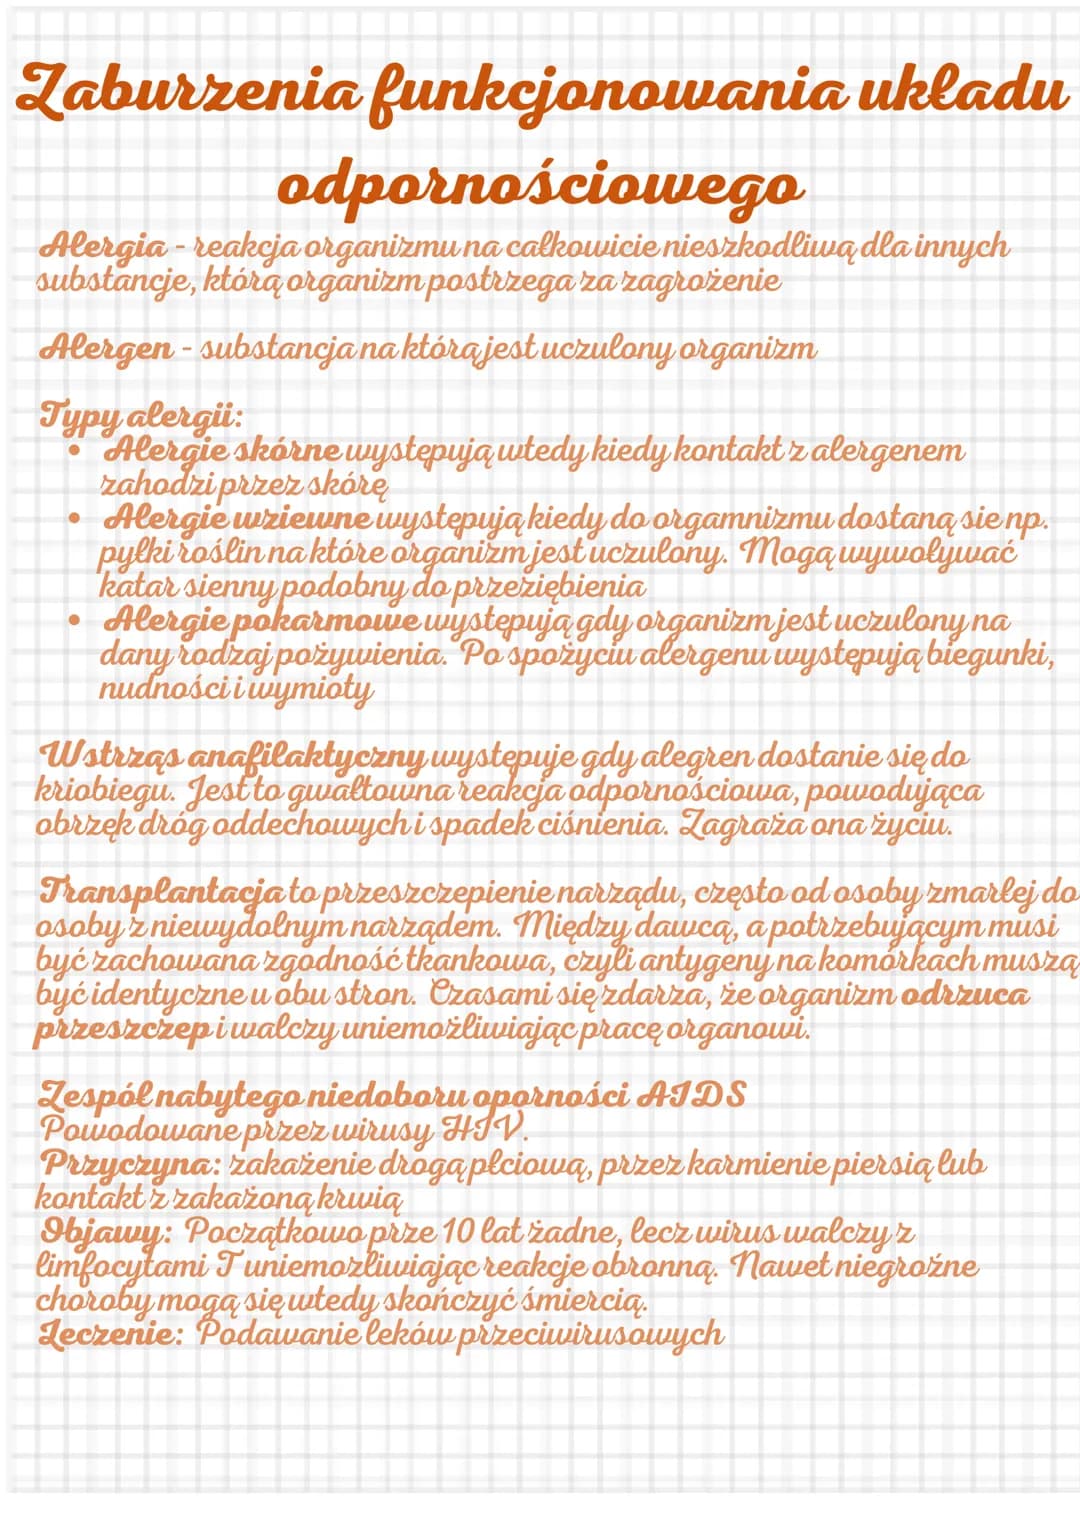 Zaburzenia funkcjonowania układu
odpornościowego
Alergia - reakcja organizmu na całkowicie nieszkodliwą dla innych
substancje, którą organizm postrzega za zagrożenie
Alergen - substancja na którą jest uczulony organizm
Typy alergii:
• Alergie skórne występują wtedy kiedy kontakt z alergenem
zahodzi przez skórę
• Alergie wziewne występują kiedy do orgamnizmu dostaną sie np.
pyłki roślin na które organizm jest uczulony. Mogą wywoływać
katar sienny podobny do przeziębienia
• Alergie pokarmowe występują gdy organizm jest uczulony na
dany rodzaj pożywienia. Po spożyciu alergenu występują biegunki,
nudności i wymioty
Wstrząs anafilaktyczny występuje gdy alegren dostanie się do
kriobiegu. Jest to gwałtowna reakcja odpornościowa, powodująca
obrzęk dróg oddechowych i spadek ciśnienia. Zagraża ona życiu.
Transplantacja to przeszczepienie narządu, często od osoby zmarłej do
osoby z niewydolnym narządem. Między dawcą, a potrzebującym musi
być zachowana zgodność tkankowa, czyli antygeny na komórkach muszą
być identyczne u obu stron. Czasami się zdarza, że organizm odrzuca
przeszczep i walczy uniemożliwiając pracę organowi.
Zespół nabytego niedoboru oporności AIDS
Powodowane przez wirusy HIV.
Przyczyna: zakażenie drogą płciową, przez karmienie piersią lub
kontakt z zakażoną krwią
Objawy: Początkowo prze 10 lat żadne, lecz wirus walczy z
limfocytami T uniemozliwiając reakcje obronną. Nawet niegroźne
choroby mogą się wtedy skończyć śmiercią.
Leczenie: Podawanie leków przeciwirusowych